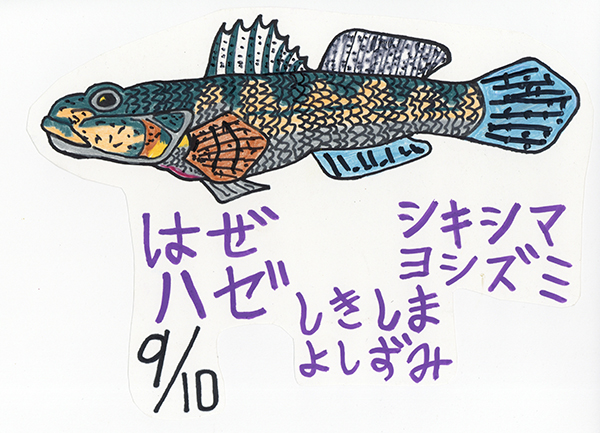 はぜ
ハゼ
9/10
シキシマ
ヨシズミ
しきしま
よしずみ